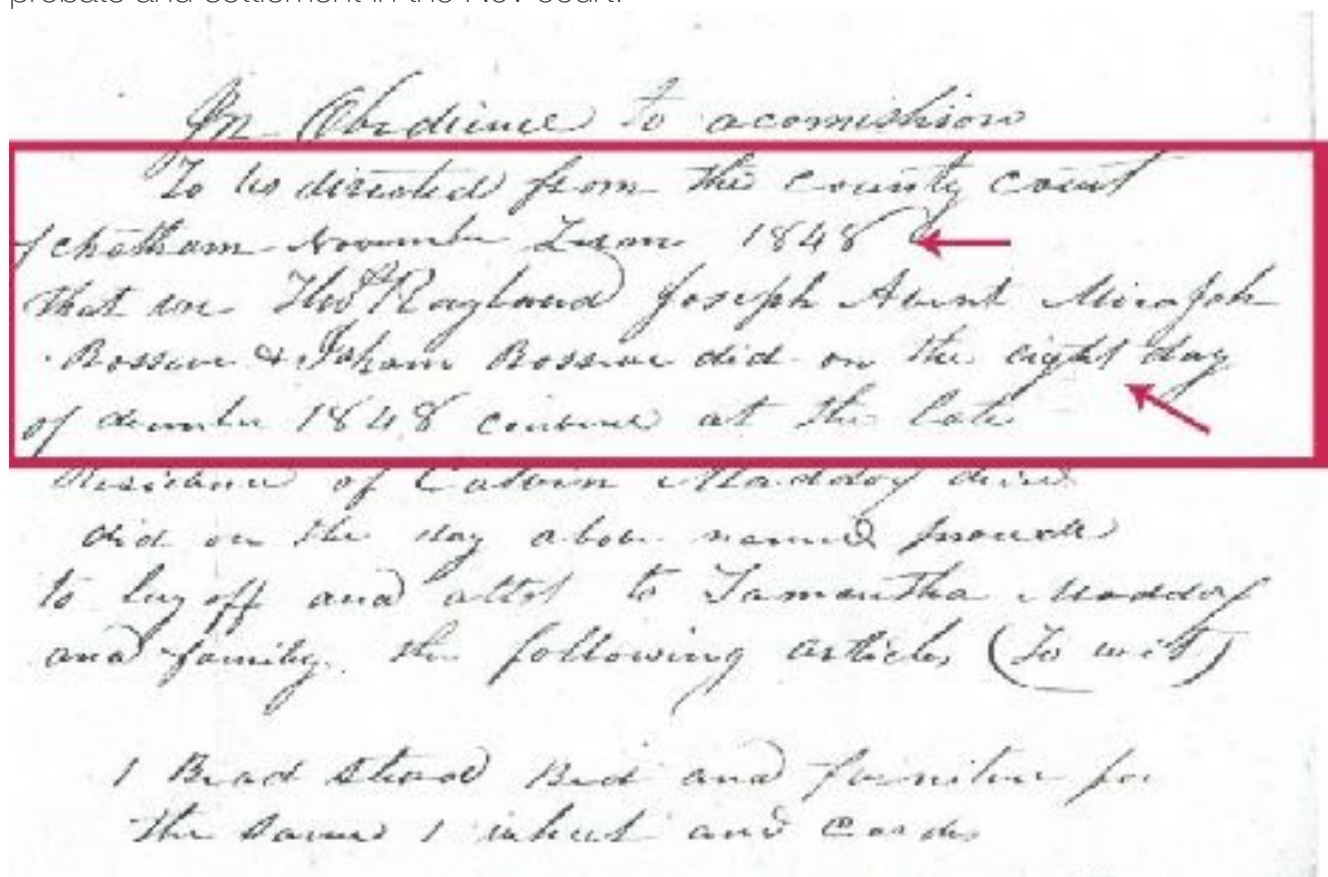 probate and settlement in the Nov court.
In Obedience to a comishion
To us directed from the county court
of chatham November Term 1848
that we Thos Ragland Joseph Avent Micajah
& Isham did on the eight day
of december 1848 convene at the late
Residence of Calvin Maddox decd
did on the day above named proceede
to lay off and allot to Tamantha Maddox
and family the following articles (To wit)
1 Bead Stead Bed and furniture for
the same 1 wheel and Cards